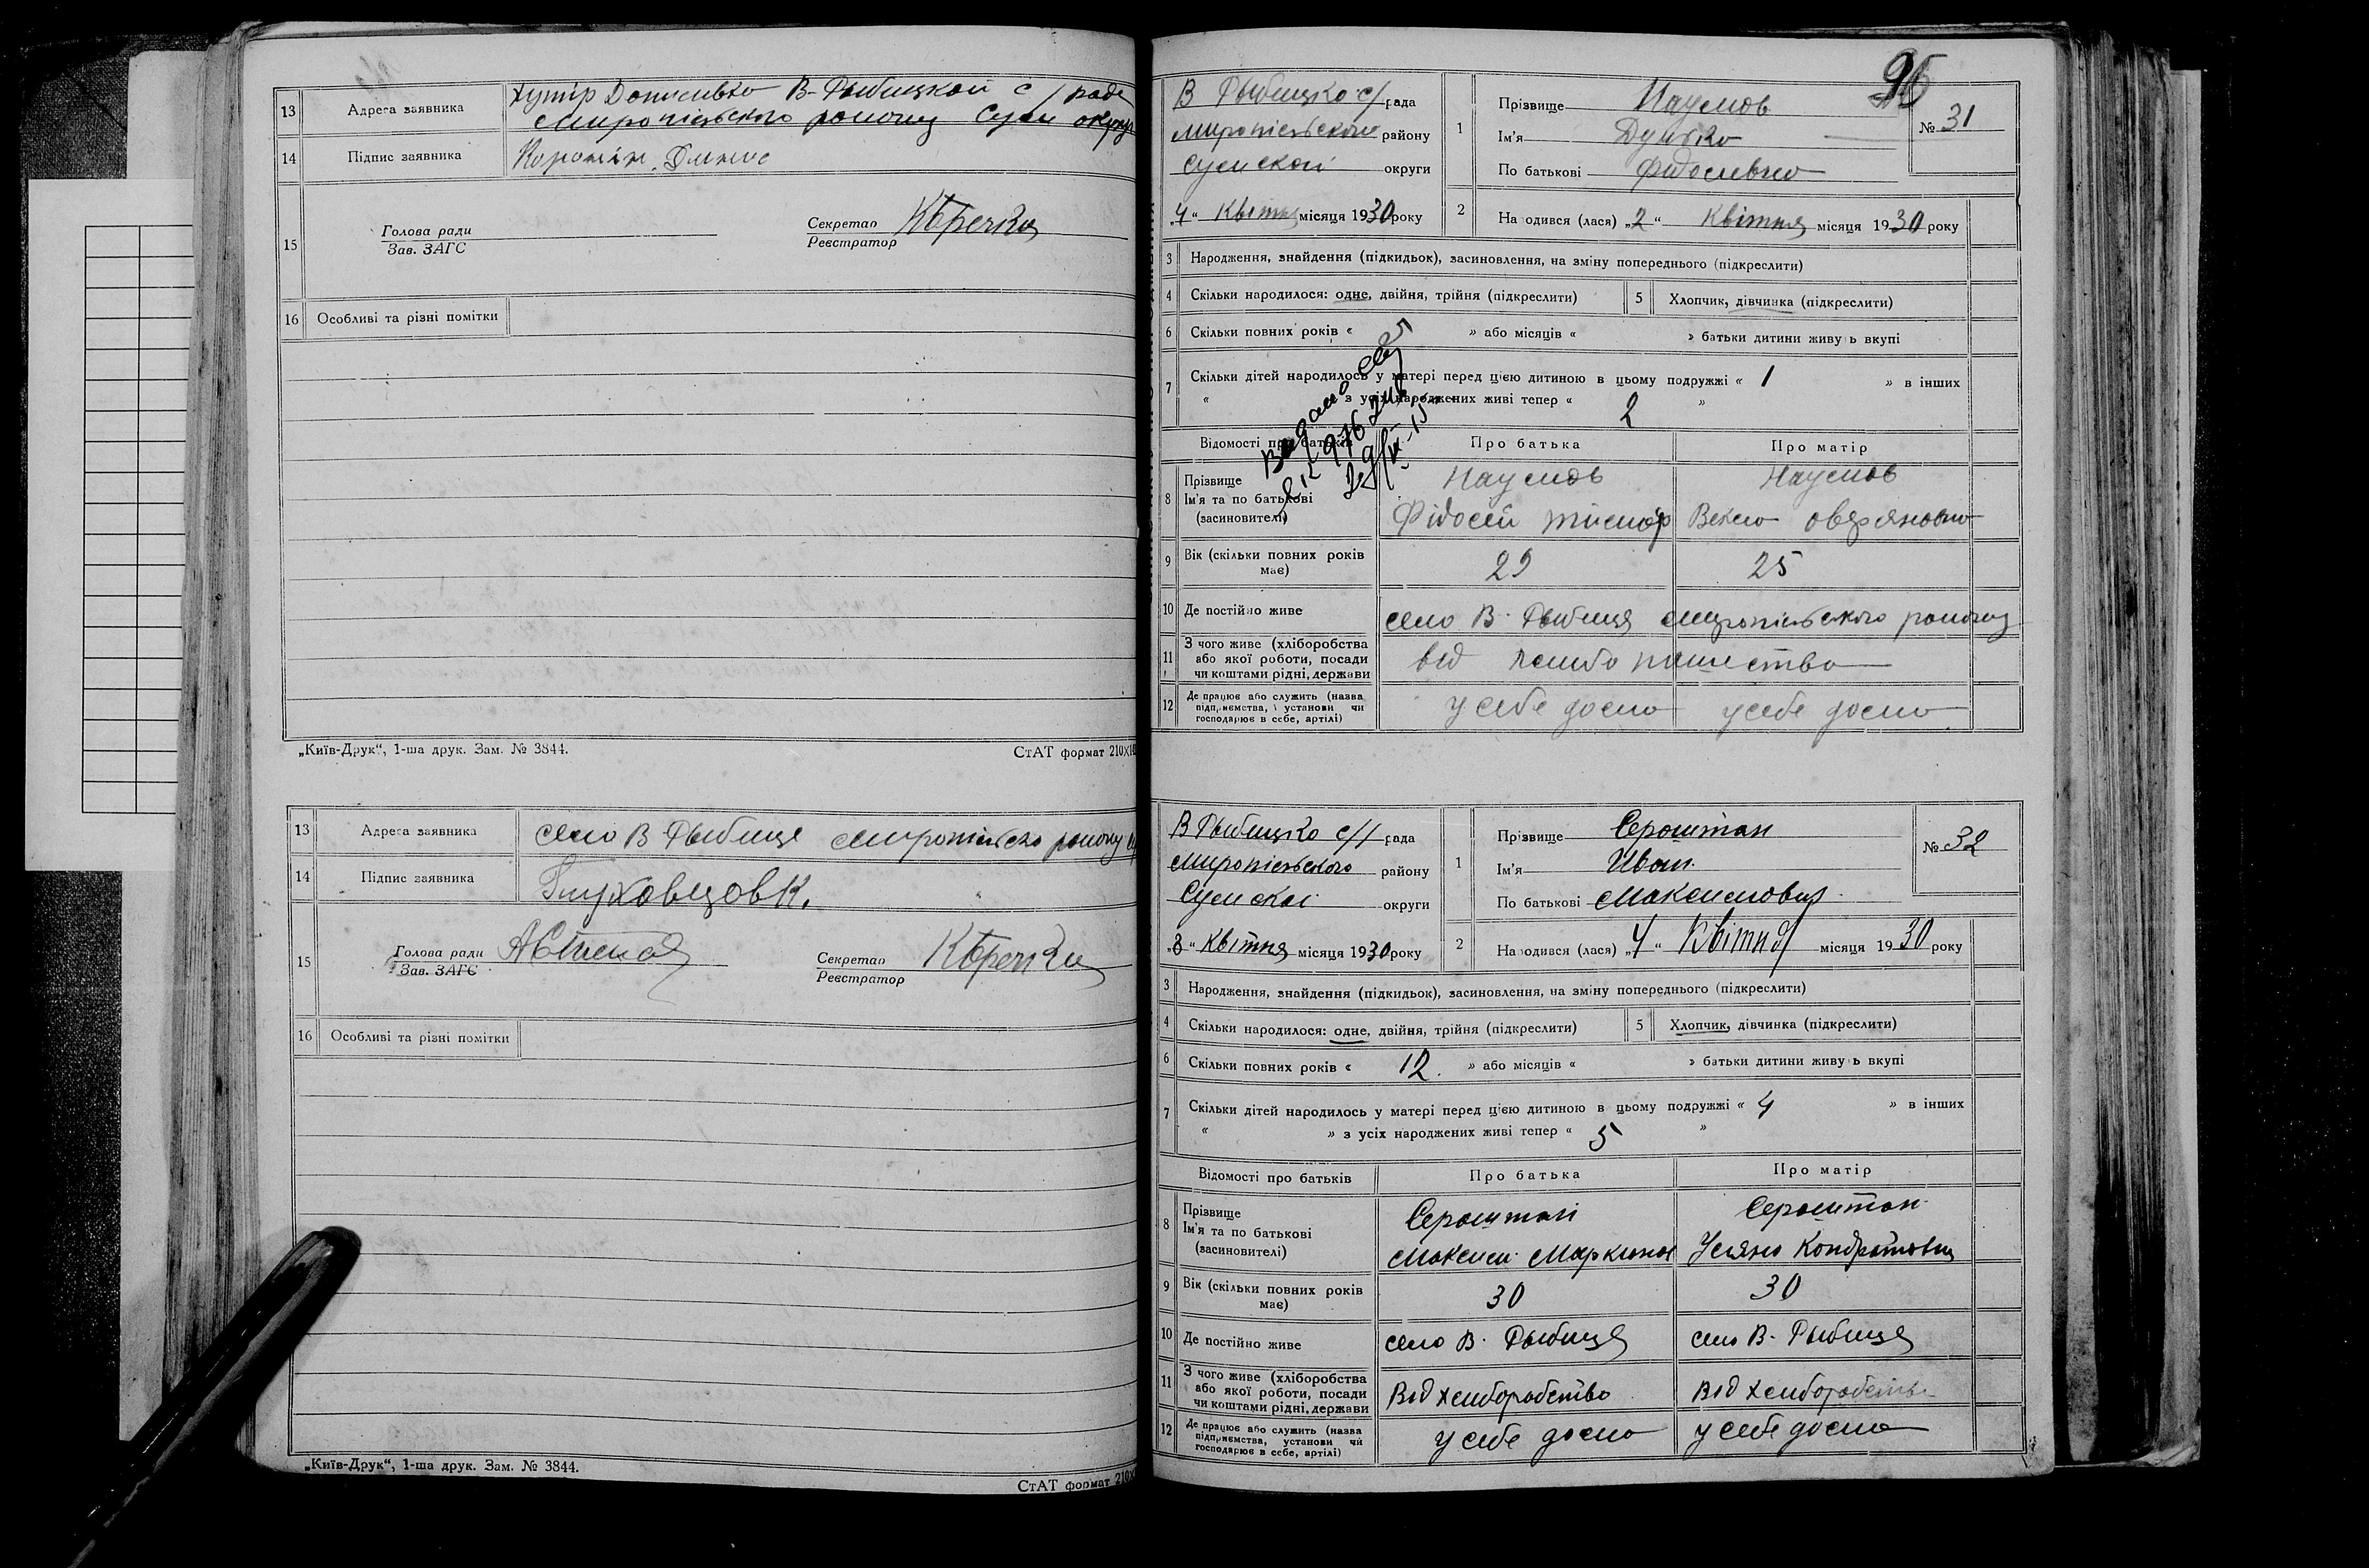 13 Адреса заявника Хутір Денисівка В-Рыбицкой с/ради
Миропільського району Суми округи
14 Підпис заявника
15 Голова ради
Зав. ЗАГС
Секретар
Реєстратор
16 Особливі та різні помітки
„Київ-Друк“, 1-ша друк. Зам. № 3844.
СтАТ формат 210Х
13 Адреса заявника село В Рыбица Миропільско району
14 Підпис заявника Глуховцов К.
15 Голова ради
Зав. ЗАГС
Секретар
Реєстратор
16 Особливі та різні помітки
„Київ-Друк“, 1-ша друк. Зам. № 3844.
СтАТ формат 210Х
95
В Рыбицко с/рада
Миропільського району
Сумской округи
„4“ Квітня місяця 1930 року
1 Прізвище Наумов
Ім'я
По батькові Фідосивна
№ 31
2 Народився (лася) „2“ Квітня місяця 1930 року
3 Народження, знайдення (підкидьок), засиновлення, на зміну попереднього (підкреслити)
4 Скільки народилося: одне, двійня, трійня (підкреслити)
5 Хлопчик, дівчинка (підкреслити)
6 Скільки повних років « » або місяців « » батьки дитини живуть вкупі
7 Скільки дітей народилось у матері перед цією дитиною в цьому подружжі « 1 » в інших
« » з усіх народжених живі тепер « 2 »
Відомості про батьків Про батька Про матір
8 Прізвище
Ім'я та по батькові
(засиновителі)
Наумов
Фідосій
Наумов
9 Вік (скільки повних років має) 29 25
10 Де постійно живе село В. Рыбиця Миропільського району
11 З чого живе (хліборобства
або якої роботи, посади
чи коштами рідні, держави
від
12 Де працює або служить (назва
підприємства, установи чи
господарює в себе, артілі)
у себе дома у себе дома
В Рыбицко с/рада
Миропільського району
Сумской округи
„8“ Квітня місяця 1930 року
1 Прізвище Сероштан
Ім'я Иван
По батькові Максимович
№ 32
2 Народився (лася) „4“ Квітня місяця 1930 року
3 Народження, знайдення (підкидьок), засиновлення, на зміну попереднього (підкреслити)
4 Скільки народилося: одне, двійня, трійня (підкреслити)
5 Хлопчик, дівчинка (підкреслити)
6 Скільки повних років « 12. » або місяців « » батьки дитини живуть вкупі
7 Скільки дітей народилось у матері перед цією дитиною в цьому подружжі « 4 » в інших
« » з усіх народжених живі тепер « 5 »
Відомості про батьків Про батька Про матір
8 Прізвище
Ім'я та по батькові
(засиновителі)
Сероштан
Максим
Сероштан
Уляна Кондратовна
9 Вік (скільки повних років має) 30 30
10 Де постійно живе село В. Рыбиця село В. Рыбиця
11 З чого живе (хліборобства
або якої роботи, посади
чи коштами рідні, держави
Від хлиборобство Від хлиборобство
12 Де працює або служить (назва
підприємства, установи чи
господарює в себе, артілі)
у себе дома у себе дома